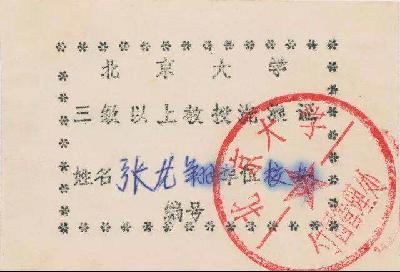 北京大学
三级以上教授洗澡证
姓名 张龙翔 单位 校办
编号
北京大学